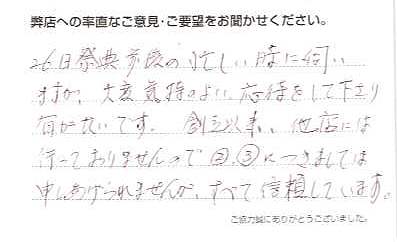 弊店への率直なご意見・ご要望をお聞かせください。
26日祭典参度の忙しい時に伺い
ますが、大変気持のよい応待をして下さり
有がたいです。創立以来、他店には
行っておりませんので②、③につきましては
申しあげられませんが、すべて信頼しています。
ご協力誠にありがとうございました。